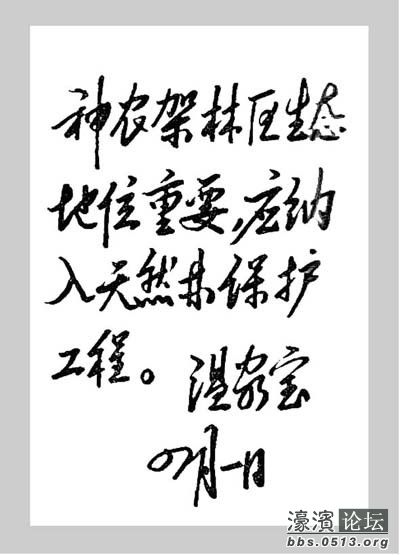 神农架林区生态
地位重要,应纳
入天然林保护
工程。
温家宝
月一日
濠滨论坛
bbs.0513.org